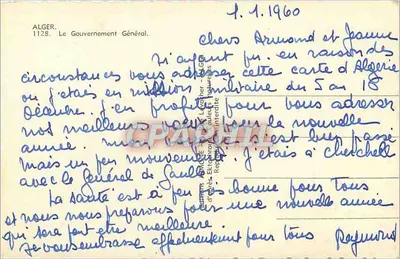 ALGER.
1128. Le Gouvernement Général.
1.1.1960
chers Armand et Jeanne
N'ayant pu en raison des
circonstances vous adresser cette carte d'Algérie
ou j'étais en mission militaire du 5 au 18
Décembre j'en profite pour vous adresser
nos meilleurs voeux pour la nouvelle
année s'est bien passé
mais un peu mouvementé j'étais à cherchell
avec le Général de Gaulle
La santé est à peu près bonne pour Tous
et nous nous préparons pour une nouvelle année
qui sera peut être meilleure
Je vous embrasse affectueusement pour Tous Raymond
CPARAMA.COM